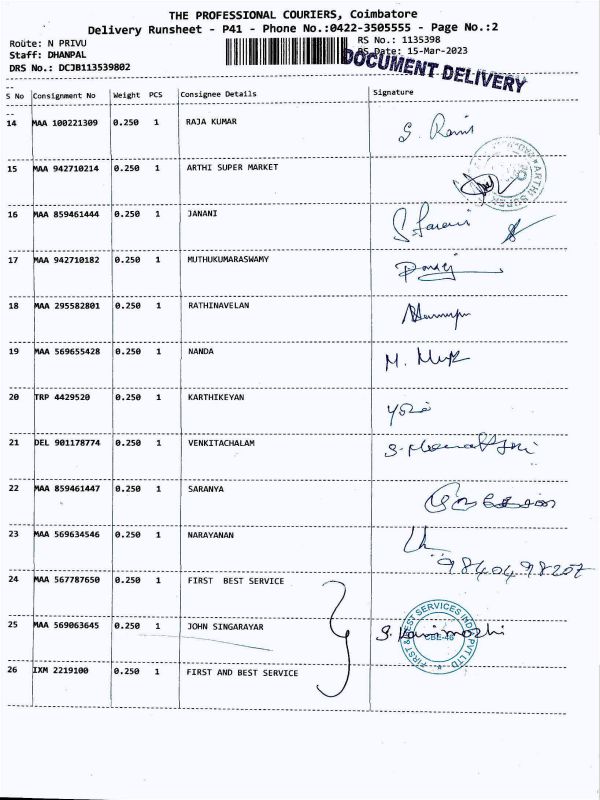 THE PROFESSIONAL COURIERS, Coimbatore
Delivery Runsheet - P41 - Phone No.:0422-3505555 - Page No.:2
Route: N PRIVU
RS No.: 1135398
Staff: DHANPAL
RS Date: 15-Mar-2023
DRS No.: DCJB113539802
DOCUMENT DELIVERY
S No Consignment No Weight PCS Consignee Details Signature
14 MAA 100221309 0.250 1 RAJA KUMAR
15 MAA 942710214 0.250 1 ARTHI SUPER MARKET
16 MAA 859461444 0.250 1 JANANI
17 MAA 942710182 0.250 1 MUTHUKUMARASWAMY
18 MAA 295582801 0.250 1 RATHINAVELAN
19 MAA 569655428 0.250 1 NANDA
20 TRP 4429520 0.250 1 KARTHIKEYAN
21 DEL 901178774 0.250 1 VENKITACHALAM
22 MAA 859461447 0.250 1 SARANYA
23 MAA 569634546 0.250 1 NARAYANAN
9840498207
24 MAA 567787650 0.250 1 FIRST BEST SERVICE
25 MAA 569063645 0.250 1 JOHN SINGARAYAR S. Kanimozhi
FIRST & BEST SERVICES INDIA PVT LTD
CBE-46
26 IXM 2219100 0.250 1 FIRST AND BEST SERVICE